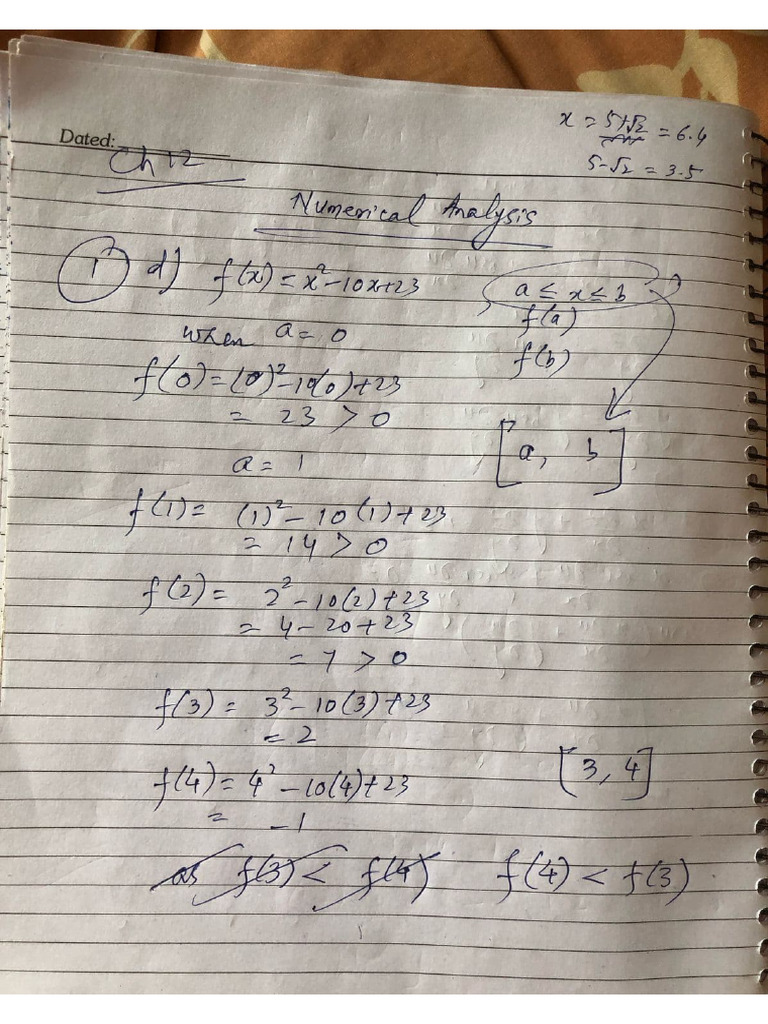 x = 5+√2 = 6.4
5-√2 = 3.5
Dated:
Ch 12
Numerical Analysis
1 d) f(x) = x²-10x+23 , a ≤ x ≤ b
f(a)
when a = 0
f(b)
f(0) = (0)²-10(0)+23
= 23 > 0
[a, b]
a = 1
f(1) = (1)² - 10(1)+23
= 14 > 0
f(2) = 2² - 10(2)+23
= 4 - 20+23
= 7 > 0
f(3) = 3² - 10(3)+23
= 2
[3, 4]
f(4) = 4² - 10(4)+23
= -1
as f(3) < f(4) f(4) < f(3)